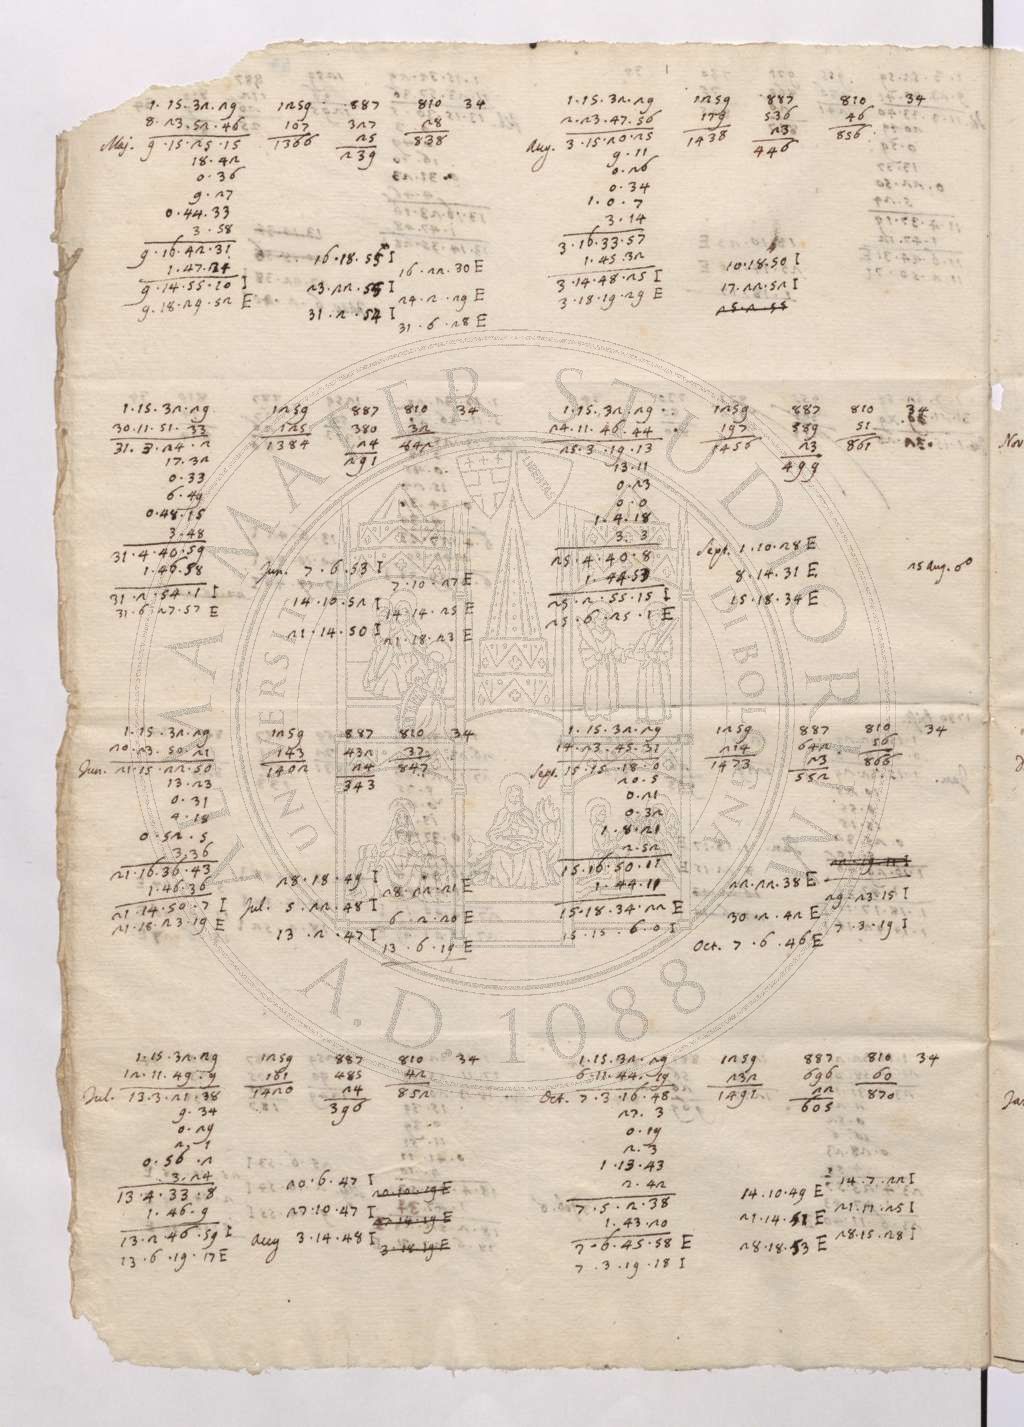 1.15.32.29 1259 887 810 34
8.23.52.46 107 327 28
Maj. 9.15.25.15 1366 25 838
18.42 239
0.36
9.27
0.44.33
3.58
9.16.42.31
1.47.24 16.18.55 I
9.14.55.10 I 16.22.30 E
9.18.29.52 E 23.22.55 I
24.2.29 E
31.2.54 I
31.6.28 E
1.15.32.29 1259 887 810 34
2.23.47.56 179 536 46
Aug. 3.15.20.25 1438 23 856
9.11 446
0.26
0.34
1.0.7
3.14
3.16.33.57
1.45.32 10.18.50 I
3.14.48.25 I 17.22.52 I
3.18.19.29 E 25.2.55
1.15.32.29 1259 887 810 34
30.11.51.33 125 380 32
31.3.24.2 1384 24 842
17.32 291
0.33
6.49
0.48.15
3.48
31.4.40.59
1.46.58 Jun. 7.6.53 I
31.2.54.1 I 7.10.27 E
31.6.27.57 E 14.10.52 I
14.14.25 E
21.14.50 I
21.18.23 E
1.15.32.29 1259 887 810 34
24.11.46.44 197 589 51
25.3.19.13 1456 23 861
13.11 499
0.23
0.0
1.4.18
3.3
25.4.40.8 Sept. 1.10.28 E
1.44.53 8.14.31 E 25 Aug.
25.2.55.15 I 15.18.34 E
25.6.25.1 E
1.15.32.29 1259 887 810 34
20.23.50.21 143 432 37
Jun. 21.15.22.50 1402 24 847
13.23 343
0.31
4.18
0.52.5
3.36
21.16.36.43
1.46.36 28.18.49 I
21.14.50.7 I 28.22.21 E
21.18.23.19 E Jul. 5.22.48 I
6.2.20 E
13.2.47 I
13.6.19 E
1.15.32.29 1259 887 810 34
14.23.45.31 214 642 56
Sept. 15.15.18.0 1473 23 866
20.5 552
0.21
0.32
1.8.21
2.52
15.16.50.11
1.44.11 22.22.38 E
15.18.34.22 E 29.23.15 I
15.15.6.0 I 30.2.42 E
7.3.19 I
Oct. 7.6.46 E
1.15.32.29 1259 887 810 34
12.11.49.9 161 485 42
Jul. 13.3.21.38 1420 24 852
9.34 396
0.29
2.1
0.56.2
3.24
13.4.33.8
1.46.9 20.6.47 I 20.10.19 E
13.2.46.59 I 27.10.47 I 27.14.19 E
13.6.19.17 E Aug 3.14.48 I 3.18.19 E
1.15.32.29 1259 887 810 34
6.11.44.19 232 696 60
Oct. 7.3.16.48 1491 22 870
27.3 605
0.19
2.3
1.13.43
2.42
7.5.2.38
1.43.20 14.10.49 E 14.7.22 I
7.6.45.58 E 21.14.51 E 21.11.25 I
7.3.19.18 I 28.18.53 E 28.15.28 I
Nov
ALMA MATER STUDIORUM
UNIVERSITÀ DI BOLOGNA
LIBERTAS
A.D. 1088